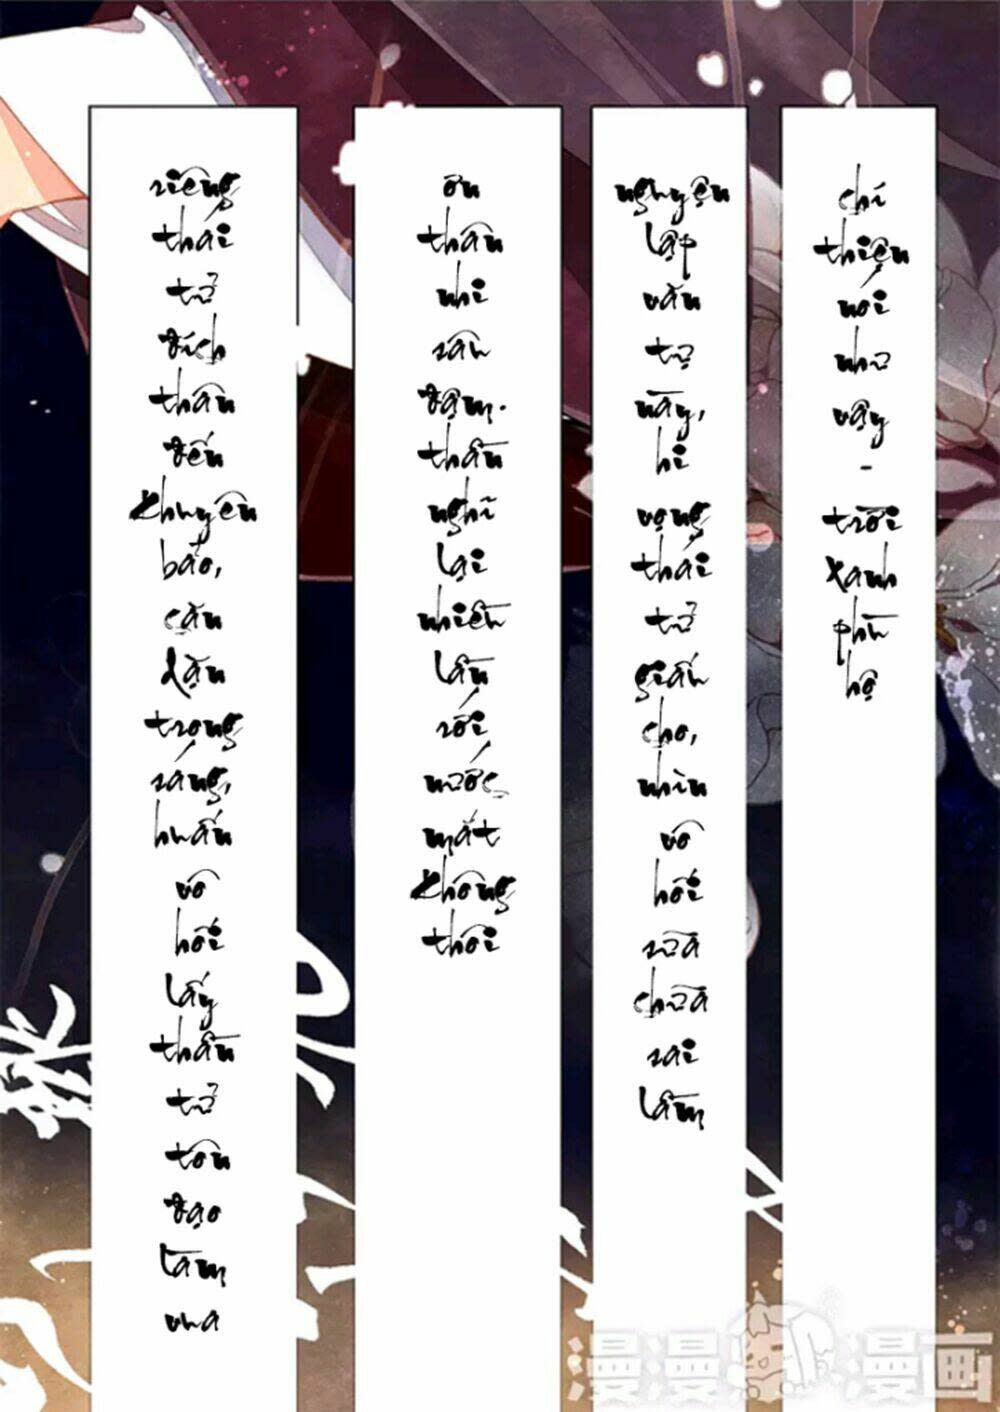 riêng
thái
tử
đích
thân
đến
khuyên
bảo,
căn
dặn
trọng
sáng,
huấn
vô
hối
lấy
thần
tử
tôn
đạo
làm
vua
ơn
thần
nhi
sâu
đậm.
thần
nghĩ
lại
nhiều
lần
rồi
nước
mắt
không
thôi
nguyện
lập
văn
tự
này,
hi
vọng
thái
tử
giấu
cho,
nhìn
vô
hối
sửa
chữa
sai
lầm
chí
thiện
nói
như
vậy
-
trời
xanh
phù
hộ
漫漫漫画